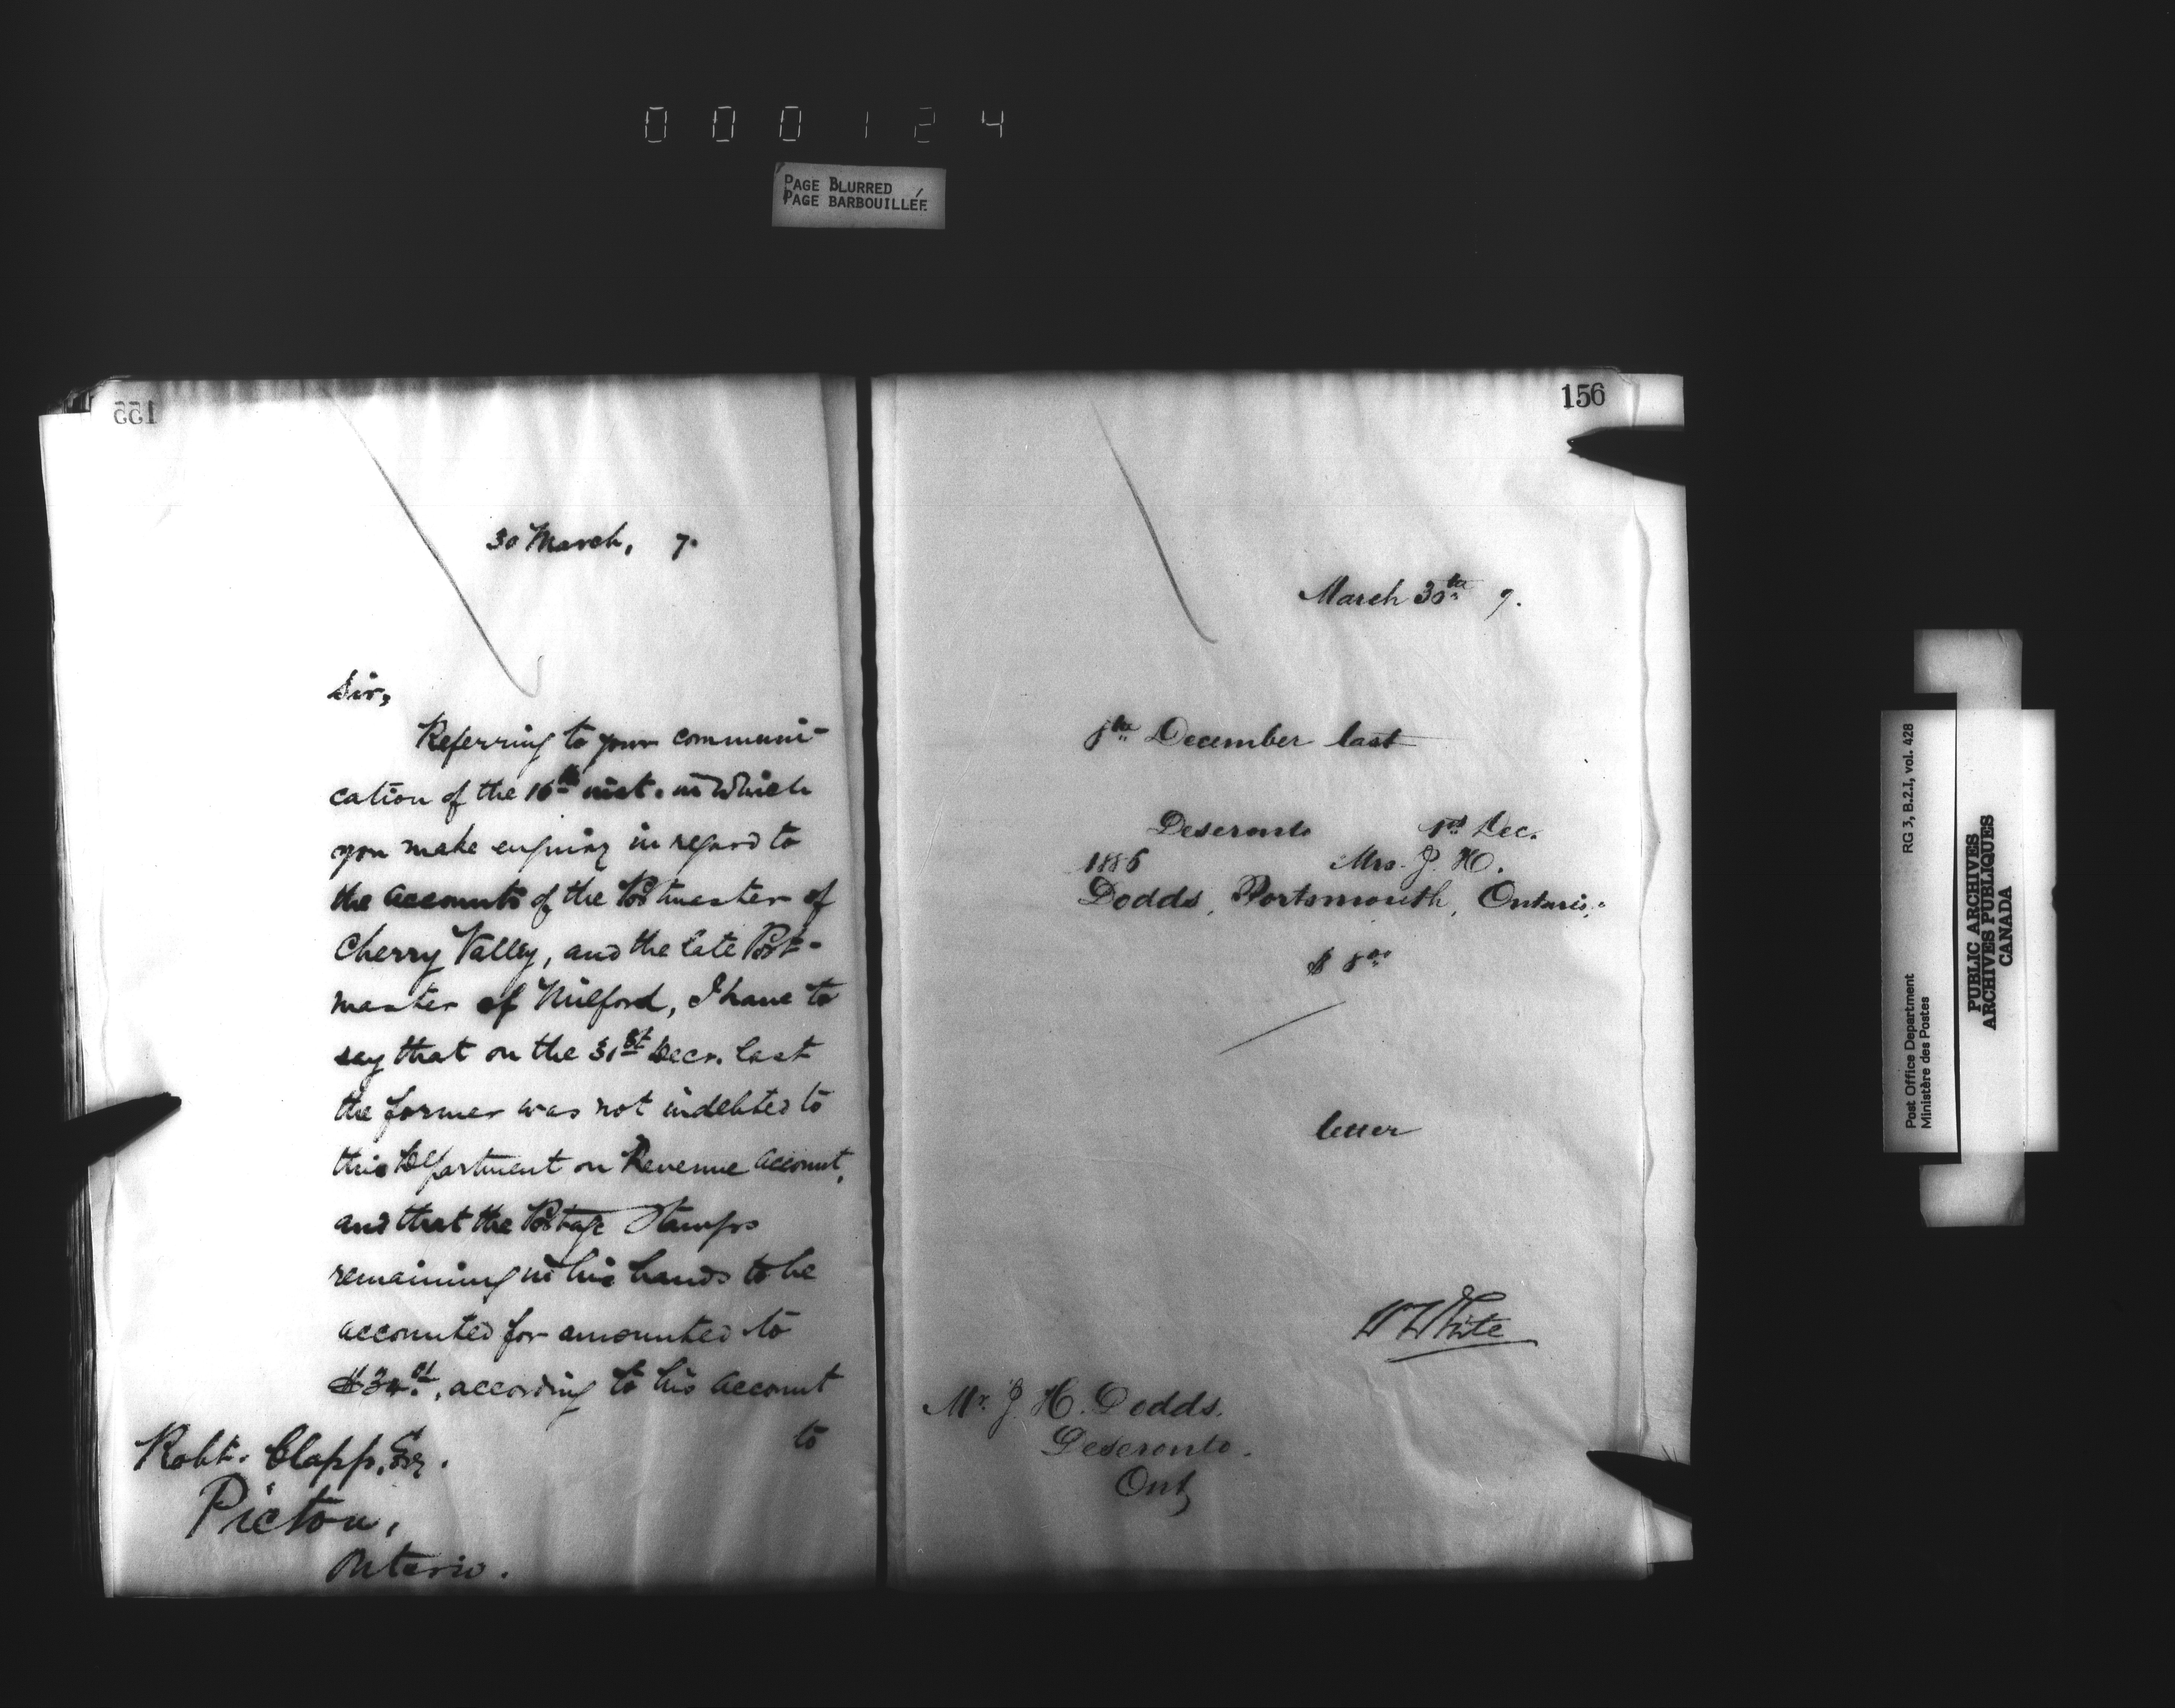 000124
PAGE BLURRED
PAGE BARBOUILLÉE
155
30 March, 7.
Sir,
Referring to your communi-
cation of the 16th inst. in which
you make enquiry in regard to
the accounts of the Postmaster of
Cherry Valley, and the late Post-
master of Milford, I have to
say that on the 31st Decr. last
the former was not indebted to
this Department on Revenue Account,
and that the Postage Stamps
remaining in his hands to be
accounted for amounted to
$34.01, according to his account
to
Robt. Clapp, Esq.
Picton,
Ontario.
156
March 30th 7.
8th December last
Deseronto 1st Dec.
1886 Mrs. J. H.
Dodds, Portsmouth, Ontario.
$8.00
letter
W White
Mr. J. H. Dodds.
Deseronto.
Ont
Post Office Department RG 3, B.2.1, vol. 428
Ministère des Postes
PUBLIC ARCHIVES
ARCHIVES PUBLIQUES
CANADA